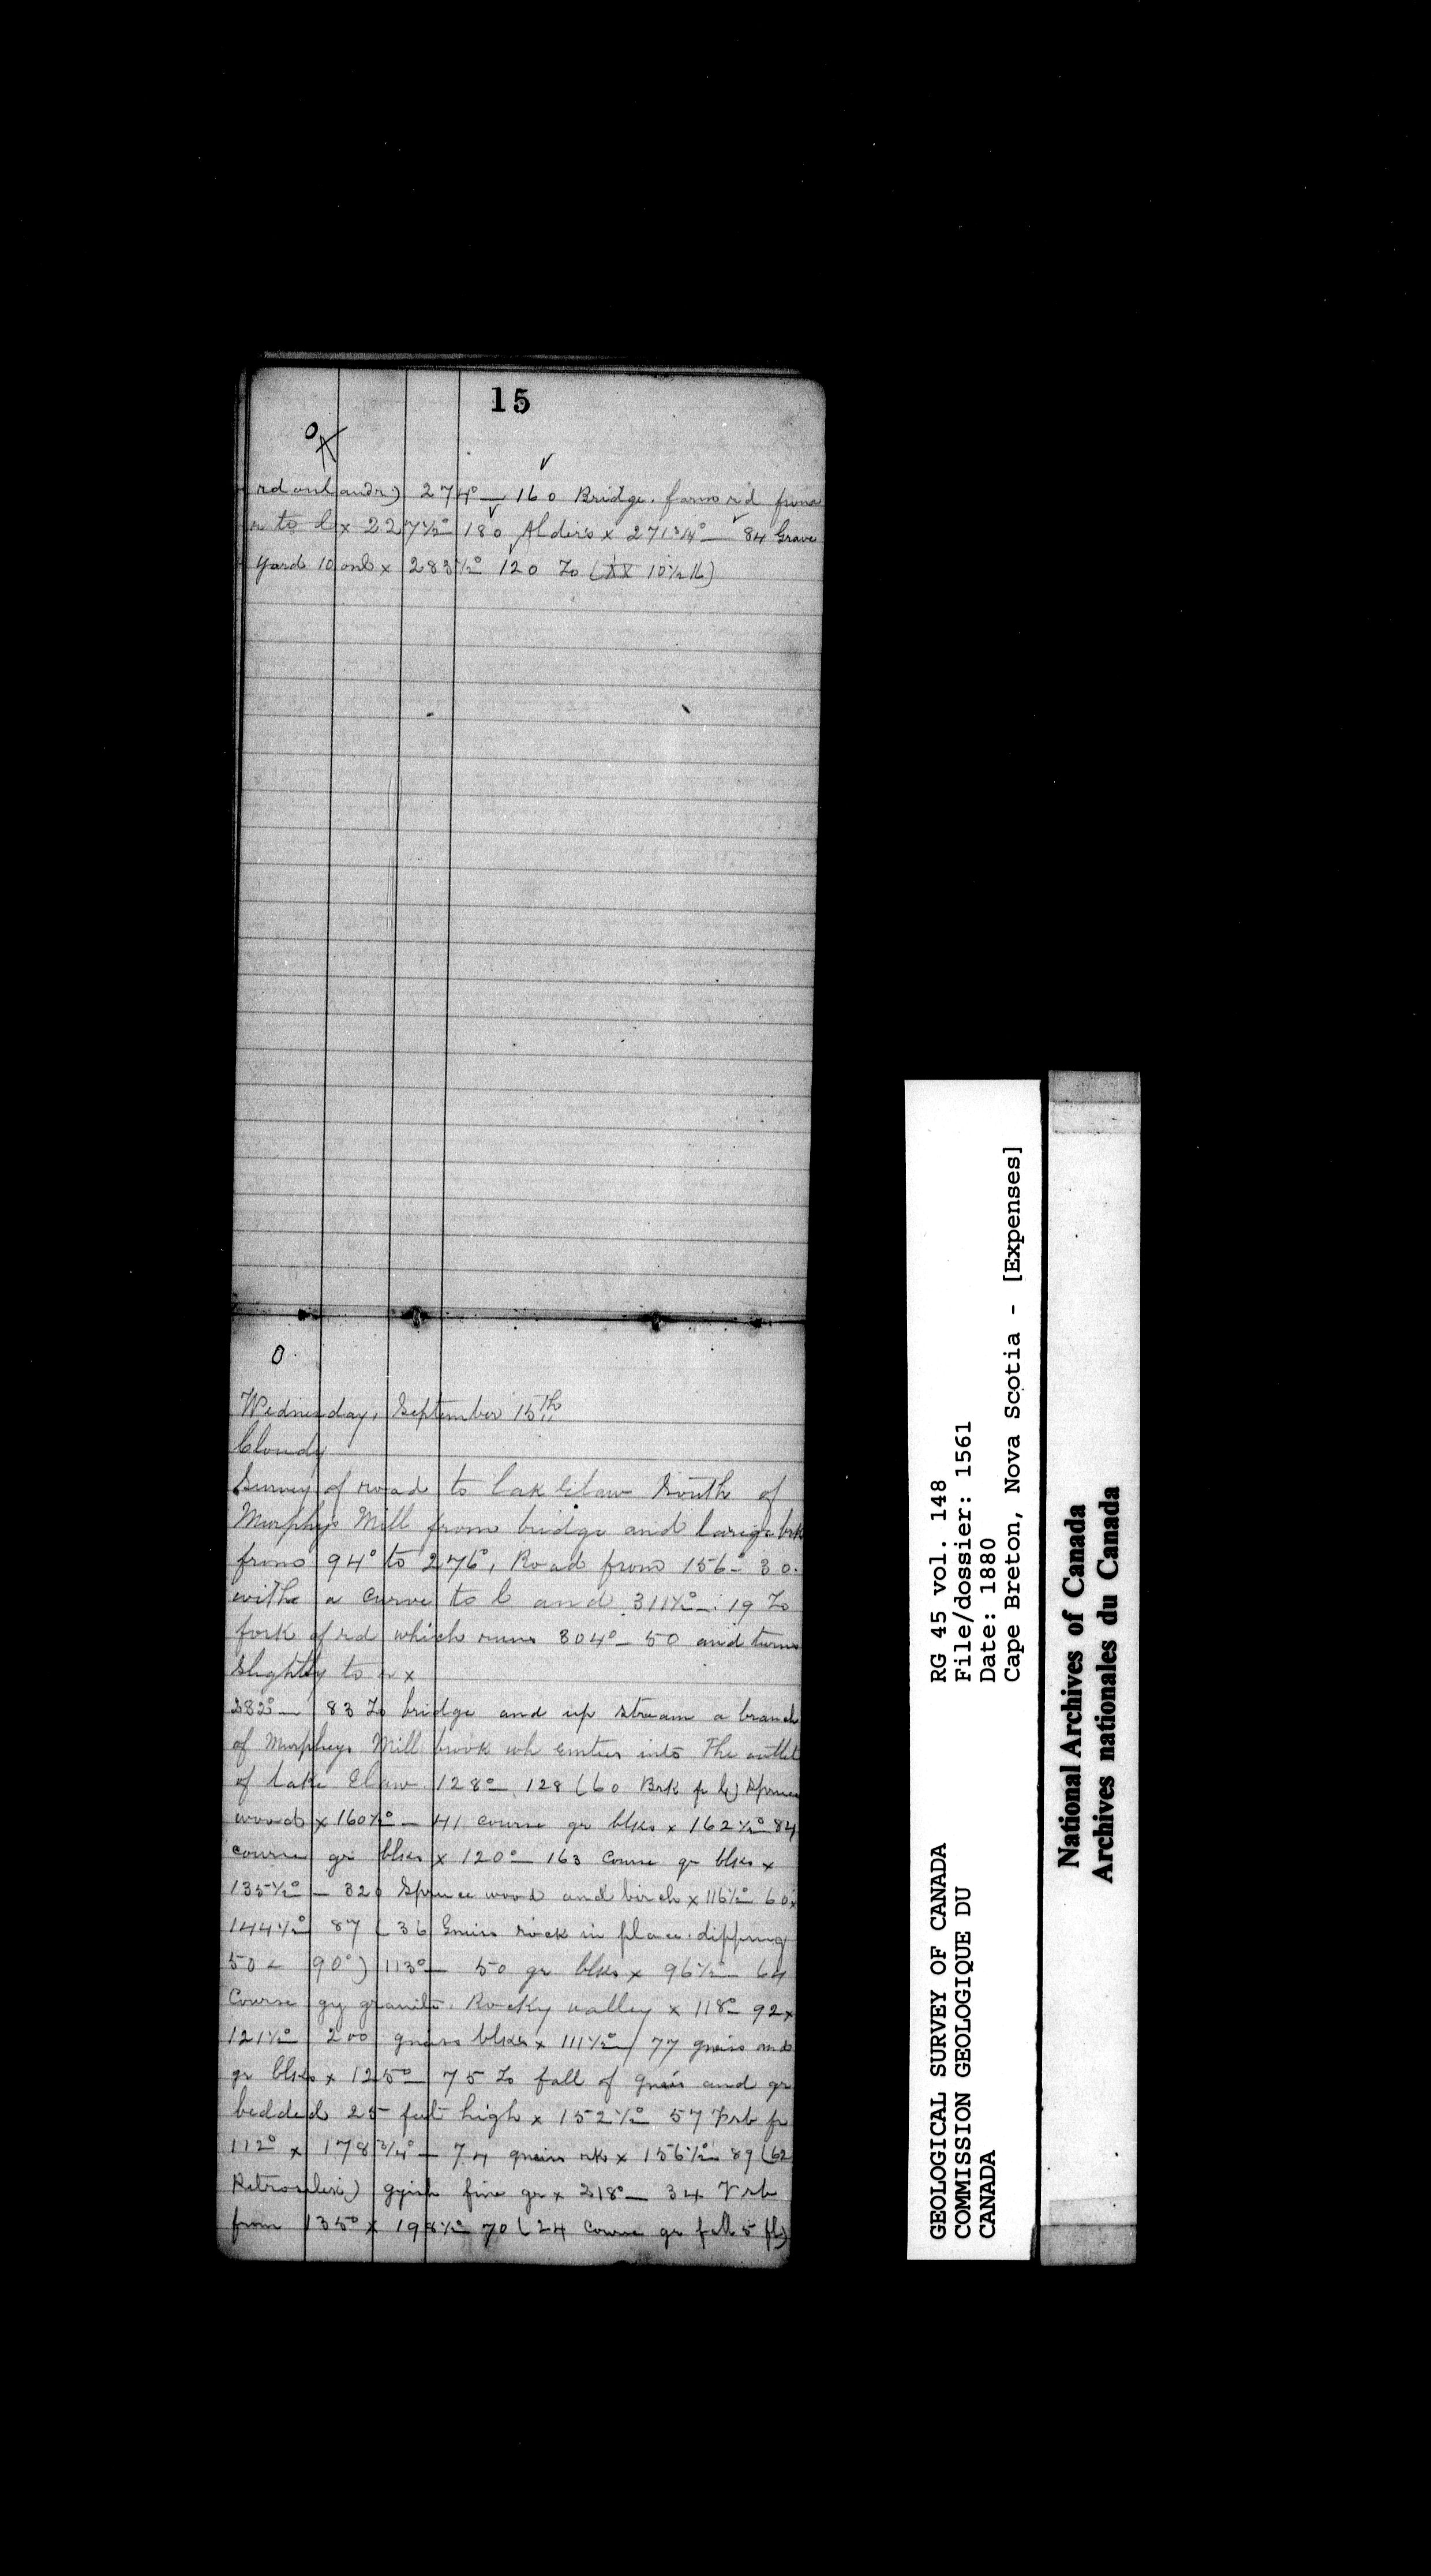 15
rd onl and r) 274° — 160 Bridge. farm rd from
r to l x 227½° 180 Alders x 271¾° — 84 Grave
Yard 10 onl x 283½° 120 To (XX 10½ 16)
Wednesday, September 15th
Cloudy
Survey of road to Lak Elaw South of
Murphys Mill from bridge and large brk
from 94° to 276°, Road from 156° 30.
with a curve to l and 311½° — 19 To
fork of rd which runs 304° — 50 and turns
slightly to r x
282° — 83 To bridge and up stream a branch
of Murpheys Mill brook wh enters into The outlet
of Lake Elaw. 128° 128 (60 Brk fr l) Spruce
wood x 160½° — 41 course gr blks x 162½° 84
course gr blks x 120° — 163 Course gr blks x
135½° — 320 Spruce wood and birch x 116½° 60 x
144½° 87 (36 Gneiss rock in place. dipping
50 < 90°) 113° — 50 gr blks x 96½° — 64
Course gy granite. Rocky valley x 118° 92 x
121½° 200 gneiss blks x 111½° 77 gneiss and
gr blks x 125° — 75 To fall of gneis and gr
bedded 25 feet high x 152½° 57 rb fr
112° x 178¾° — 74 gneiss rks x 156½° 89 (62
Petrosilex) gyish fine gr x 218° — 34 rb
from 135° x 198½° 70 (24 Course gr fall 5 ft)
GEOLOGICAL SURVEY OF CANADA
COMMISSION GEOLOGIQUE DU
CANADA
RG 45 vol. 148
File/dossier: 1561
Date: 1880
Cape Breton, Nova Scotia - [Expenses]
National Archives of Canada
Archives nationales du Canada